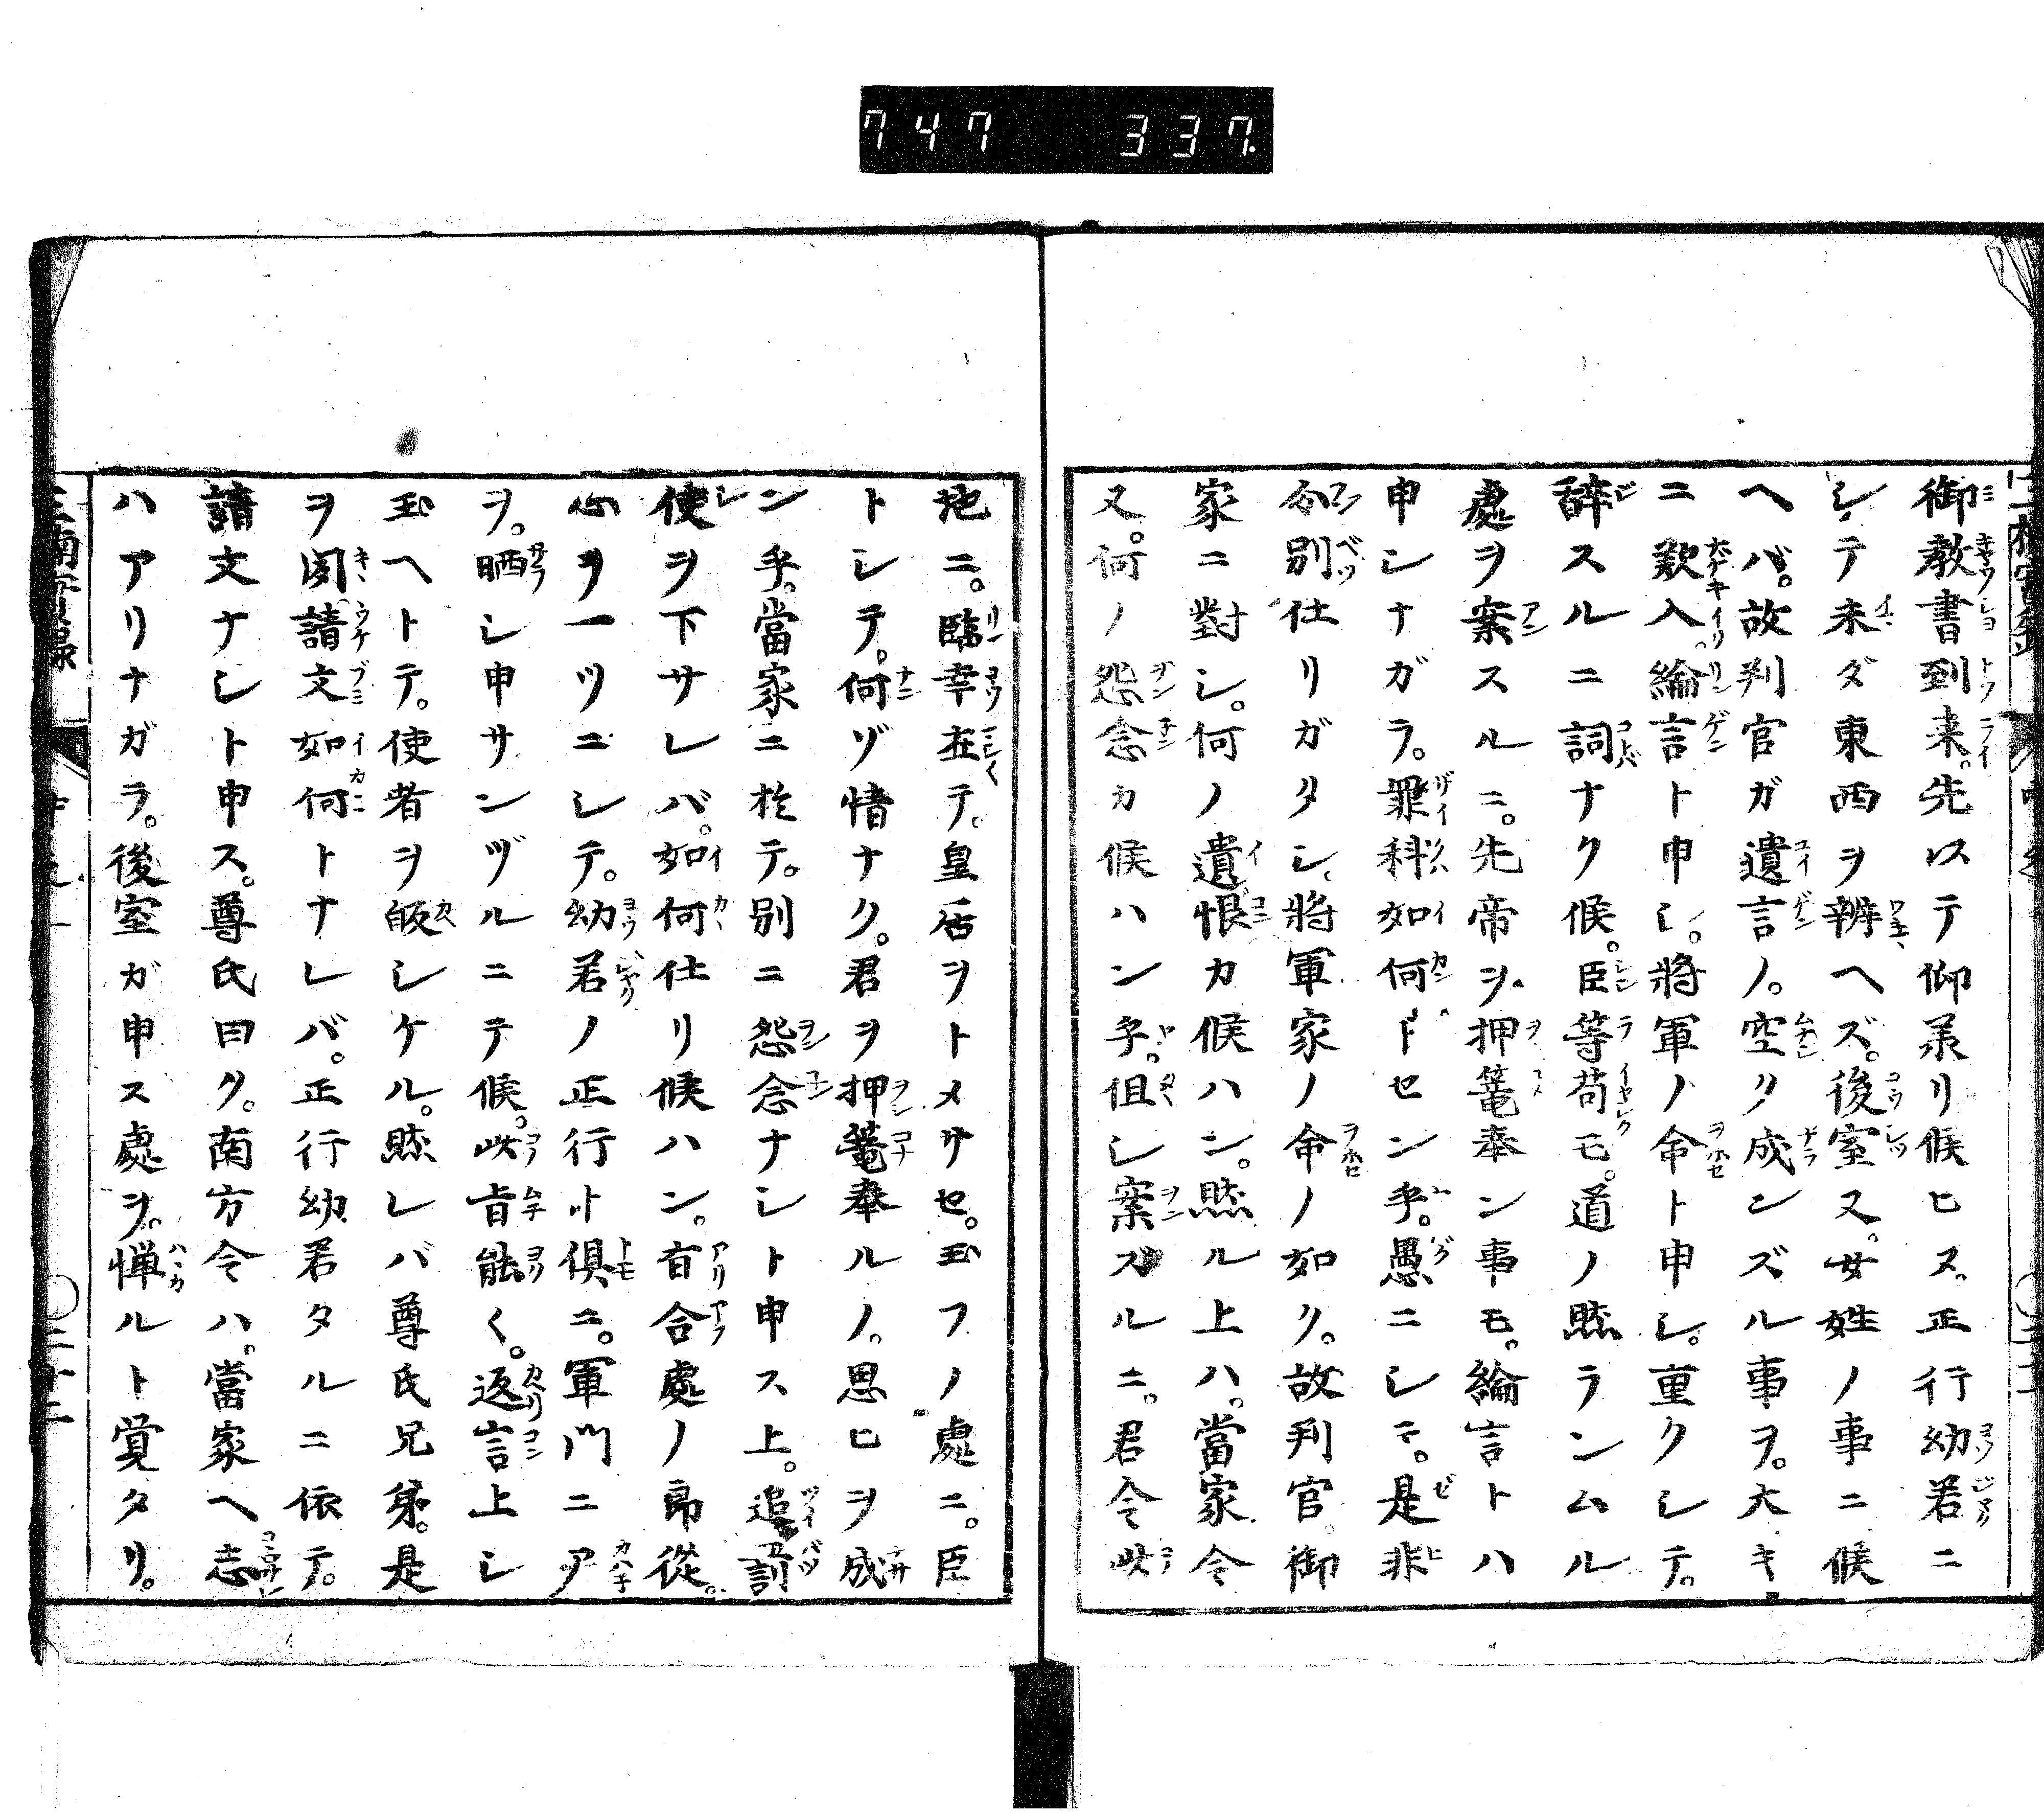 747 337
御教書到来。先以テ仰義リ候ヒヌ。正行幼若ニ
シテ未ダ東西ヲ辨ヘズ。後室又。女姓ノ事ニ候
ヘバ。故判官ガ遺言ノ。空ク成ンズル事ヲ。大キ
ニ歎入。綸言ト申シ。將軍ノ命ト申シ。重クシテ。
辞スルニ詞ナク候。臣等苟モ。道ノ㷔ランムル
處ヲ案スルニ。先帝ヲ押篭奉ン事モ。綸言トハ
申シナガラ。罪科如何トセン乎。愚ニシテ。是非
分別仕リガタシ。將軍家ノ命ノ如ク。故判官。御
家ニ對シ。何ノ遺恨カ候ハン。然ル上ハ。當家今
又。何ノ怨念カ候ハン乎。但シ案ズルニ。君今此
地ニ。臨幸在テ。皇居ヲトメサセ。玉フノ處ニ。臣
トシテ。何ゾ情ナク。君ヲ押篭奉ルノ。思ヒヲ成
ン乎。當家ニ於テ。別ニ怨念ナシト申ス上。追討
使ヲ下サレバ。如何仕リ候ハン。有合處ノ郎從。
心ヲ一ツニシテ。幼若ノ正行ト倶ニ。軍門ニア
ヲ。晒シ申サンヅルニテ候。此旨能く。返言上シ
玉ヘトテ。使者ヲ皈シケル。然レバ尊氏兄弟。是
ヲ聞。請文如何トナレバ。正行幼君タルニ依テ。
請文ナシト申ス。尊氏曰ク。南方今ハ。當家ヘ志
ハアリナガラ。後室ガ申ス處ヲ。憚ルト覚タリ。